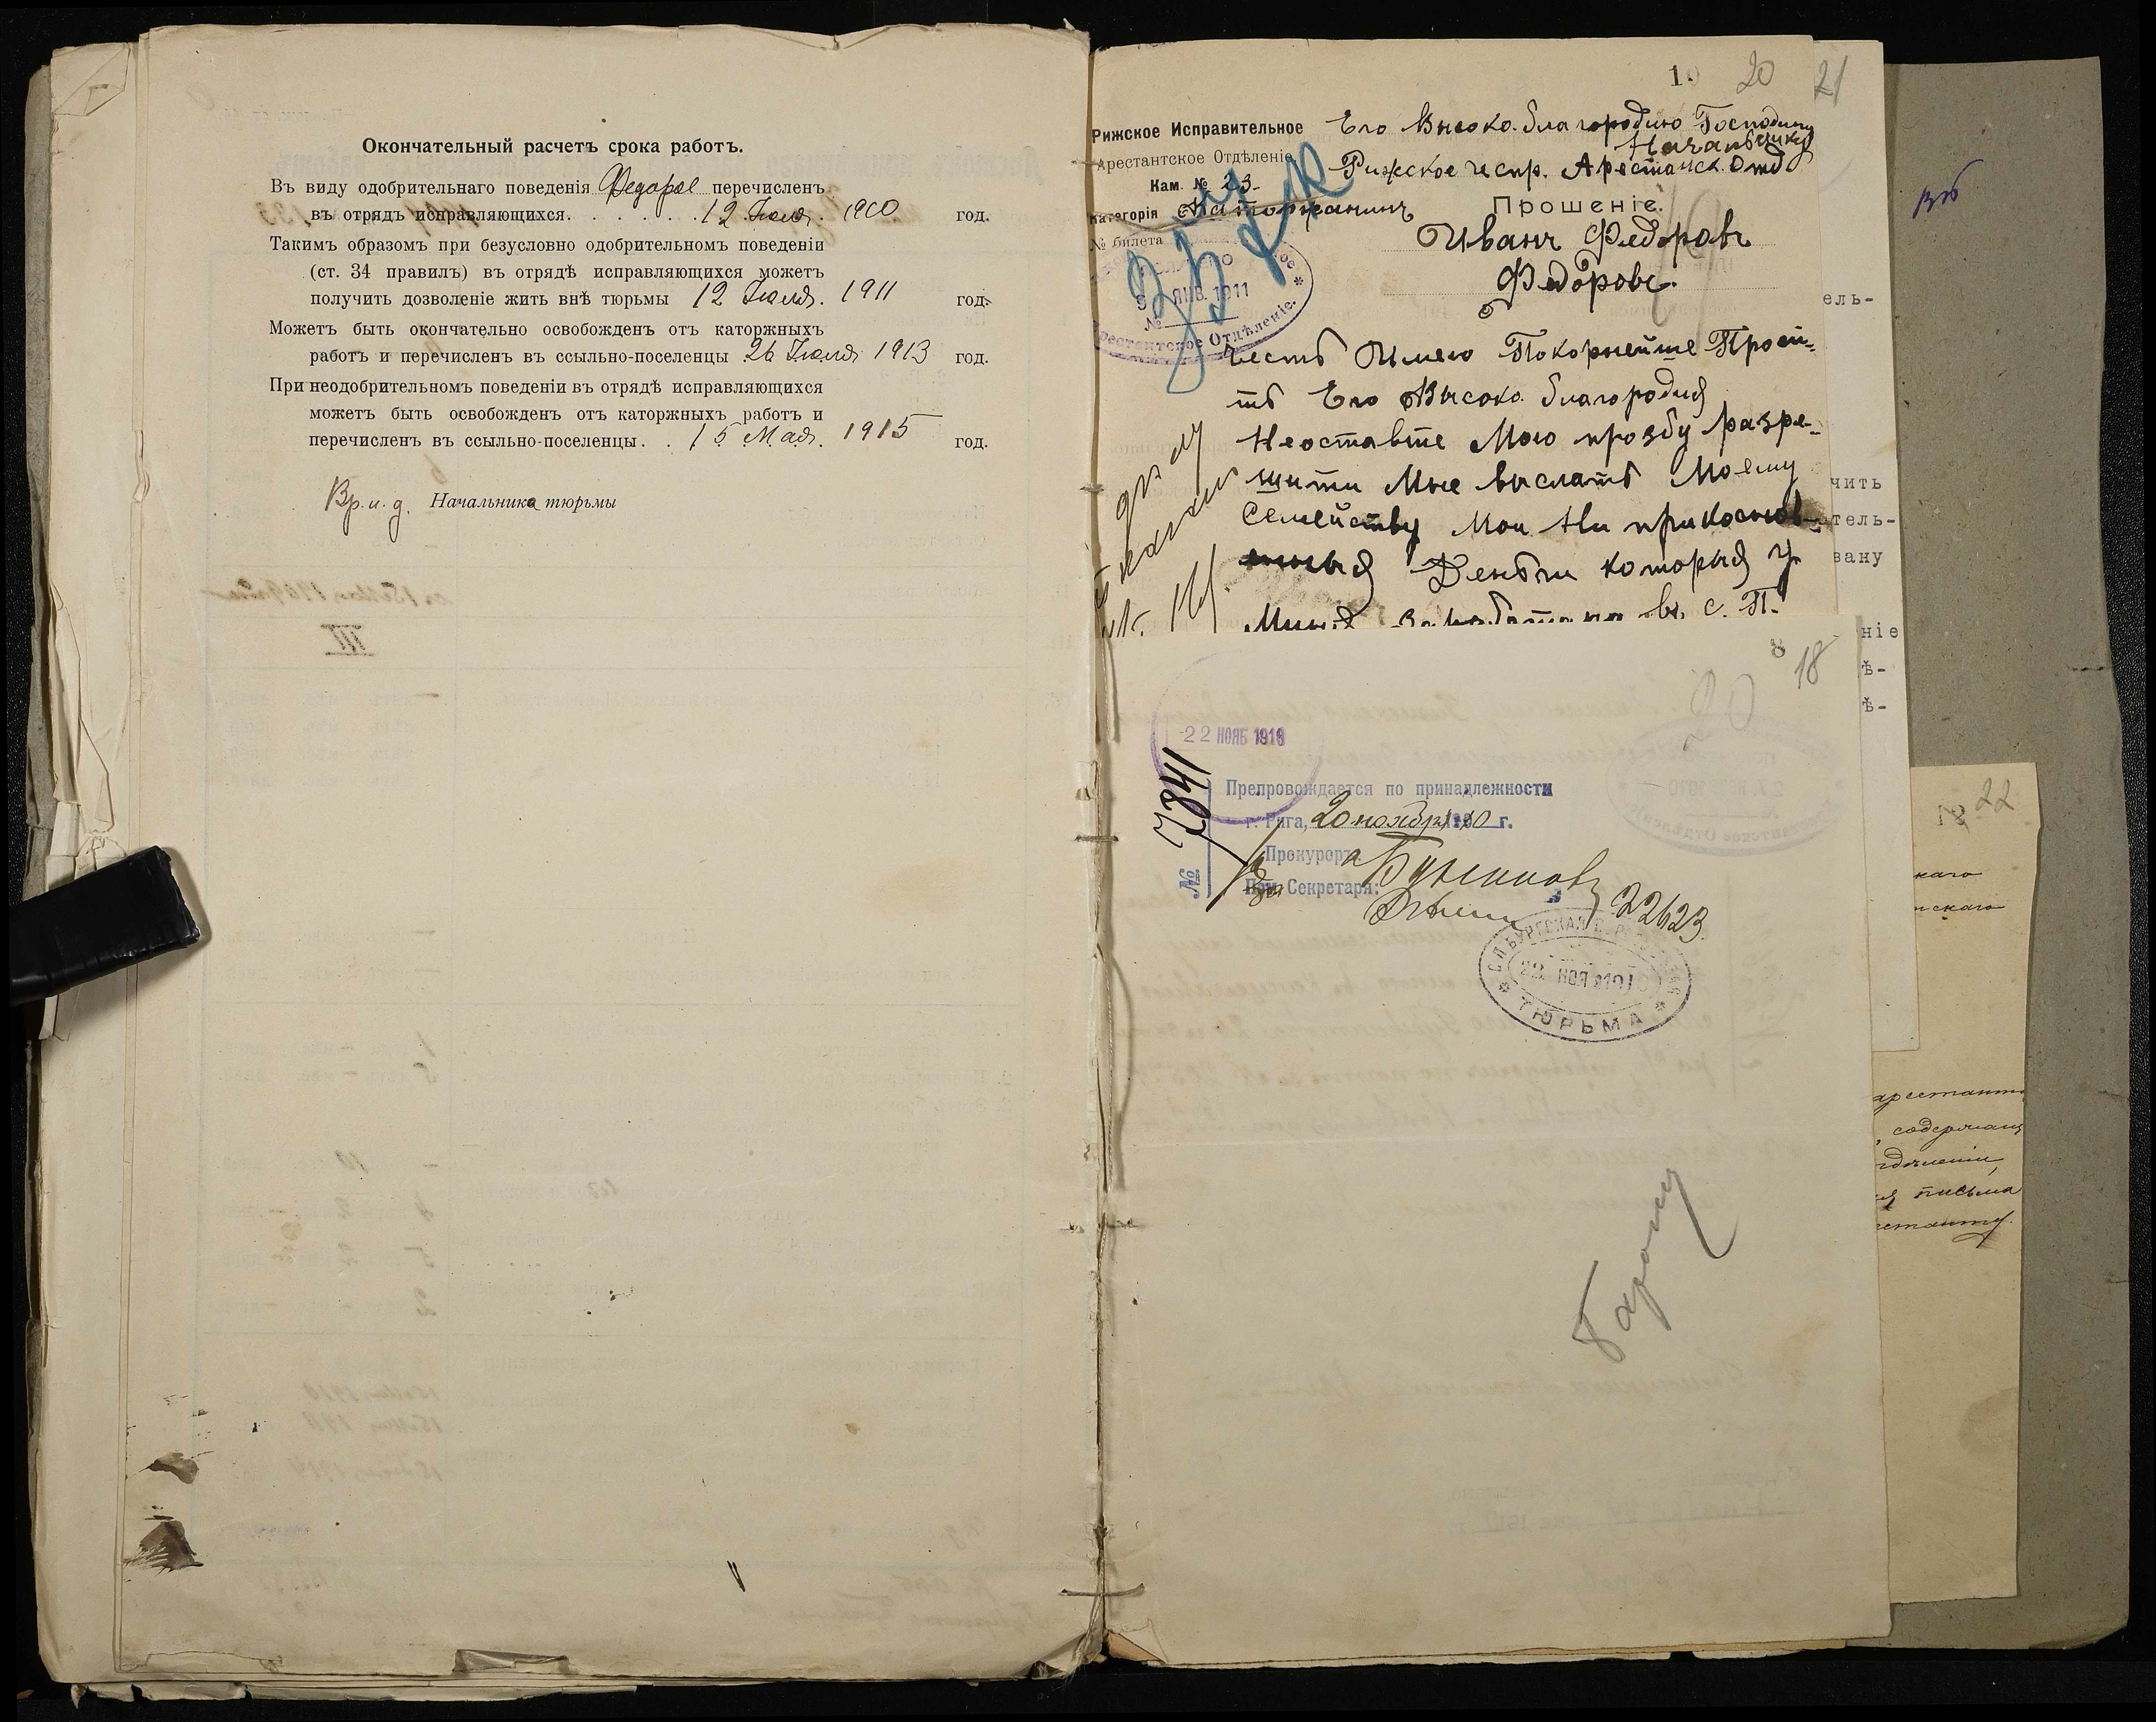 Окончательный расчетъ срока работъ.
Въ виду одобрительнаго поведенія Федоров перечисленъ
въ отрядъ исправляющихся. . . . . . 12 Іюля. 1910 год.
Такимъ образомъ при безусловно одобрительномъ поведеніи
(ст. 34 правилъ) въ отрядѣ исправляющихся можетъ
получить дозволеніе жить внѣ тюрьмы 12 Іюля. 1911 год.
Можетъ быть окончательно освобожденъ отъ каторжныхъ
работъ и перечисленъ въ ссыльно-поселенцы 26 Іюля 1913 год.
При неодобрительномъ поведеніи въ отрядѣ исправляющихся
можетъ быть освобожденъ отъ каторжныхъ работъ и
перечисленъ въ ссыльно-поселенцы. . 15 Мая. 1915 год.
Вр. и. д. Начальника тюрьмы
10 20 21
Рижское Исправительное
Арестантское Отдѣленіе.
Кам. № 23.
Категорія Каторжанинъ
№ билета
9 ЯНВ. 1911
№
Арестантское Отдѣленіе.
Его Высоко благородию Господину
Начальнику
Рижское испр. Арестанск. Отд
Прошеніе.
Иванъ Федоровъ
Федорове.
Честь Имею Покорнейше Проси-
ть Его Высоко благородия
Неоставте Мою прозбу разре-
шити Мне выслать Моему
Семейству Мои Ни прикоснов-
Деньги которыя у
Миня Заработана въ с. П.
8 18
20
22 НОЯБ 1910
№ 11487
Препровождается по принадлежности
г. Рига, 20 ноября 1910 г.
Прокуроръ
Секретаря:
22623
22 НОЯ 1910
ТЮРЬМА
ель-
чить
тель-
вану
ніе
ѣ-
ѣ-
18 22
каго
скаго
арестант
содержащ
письма